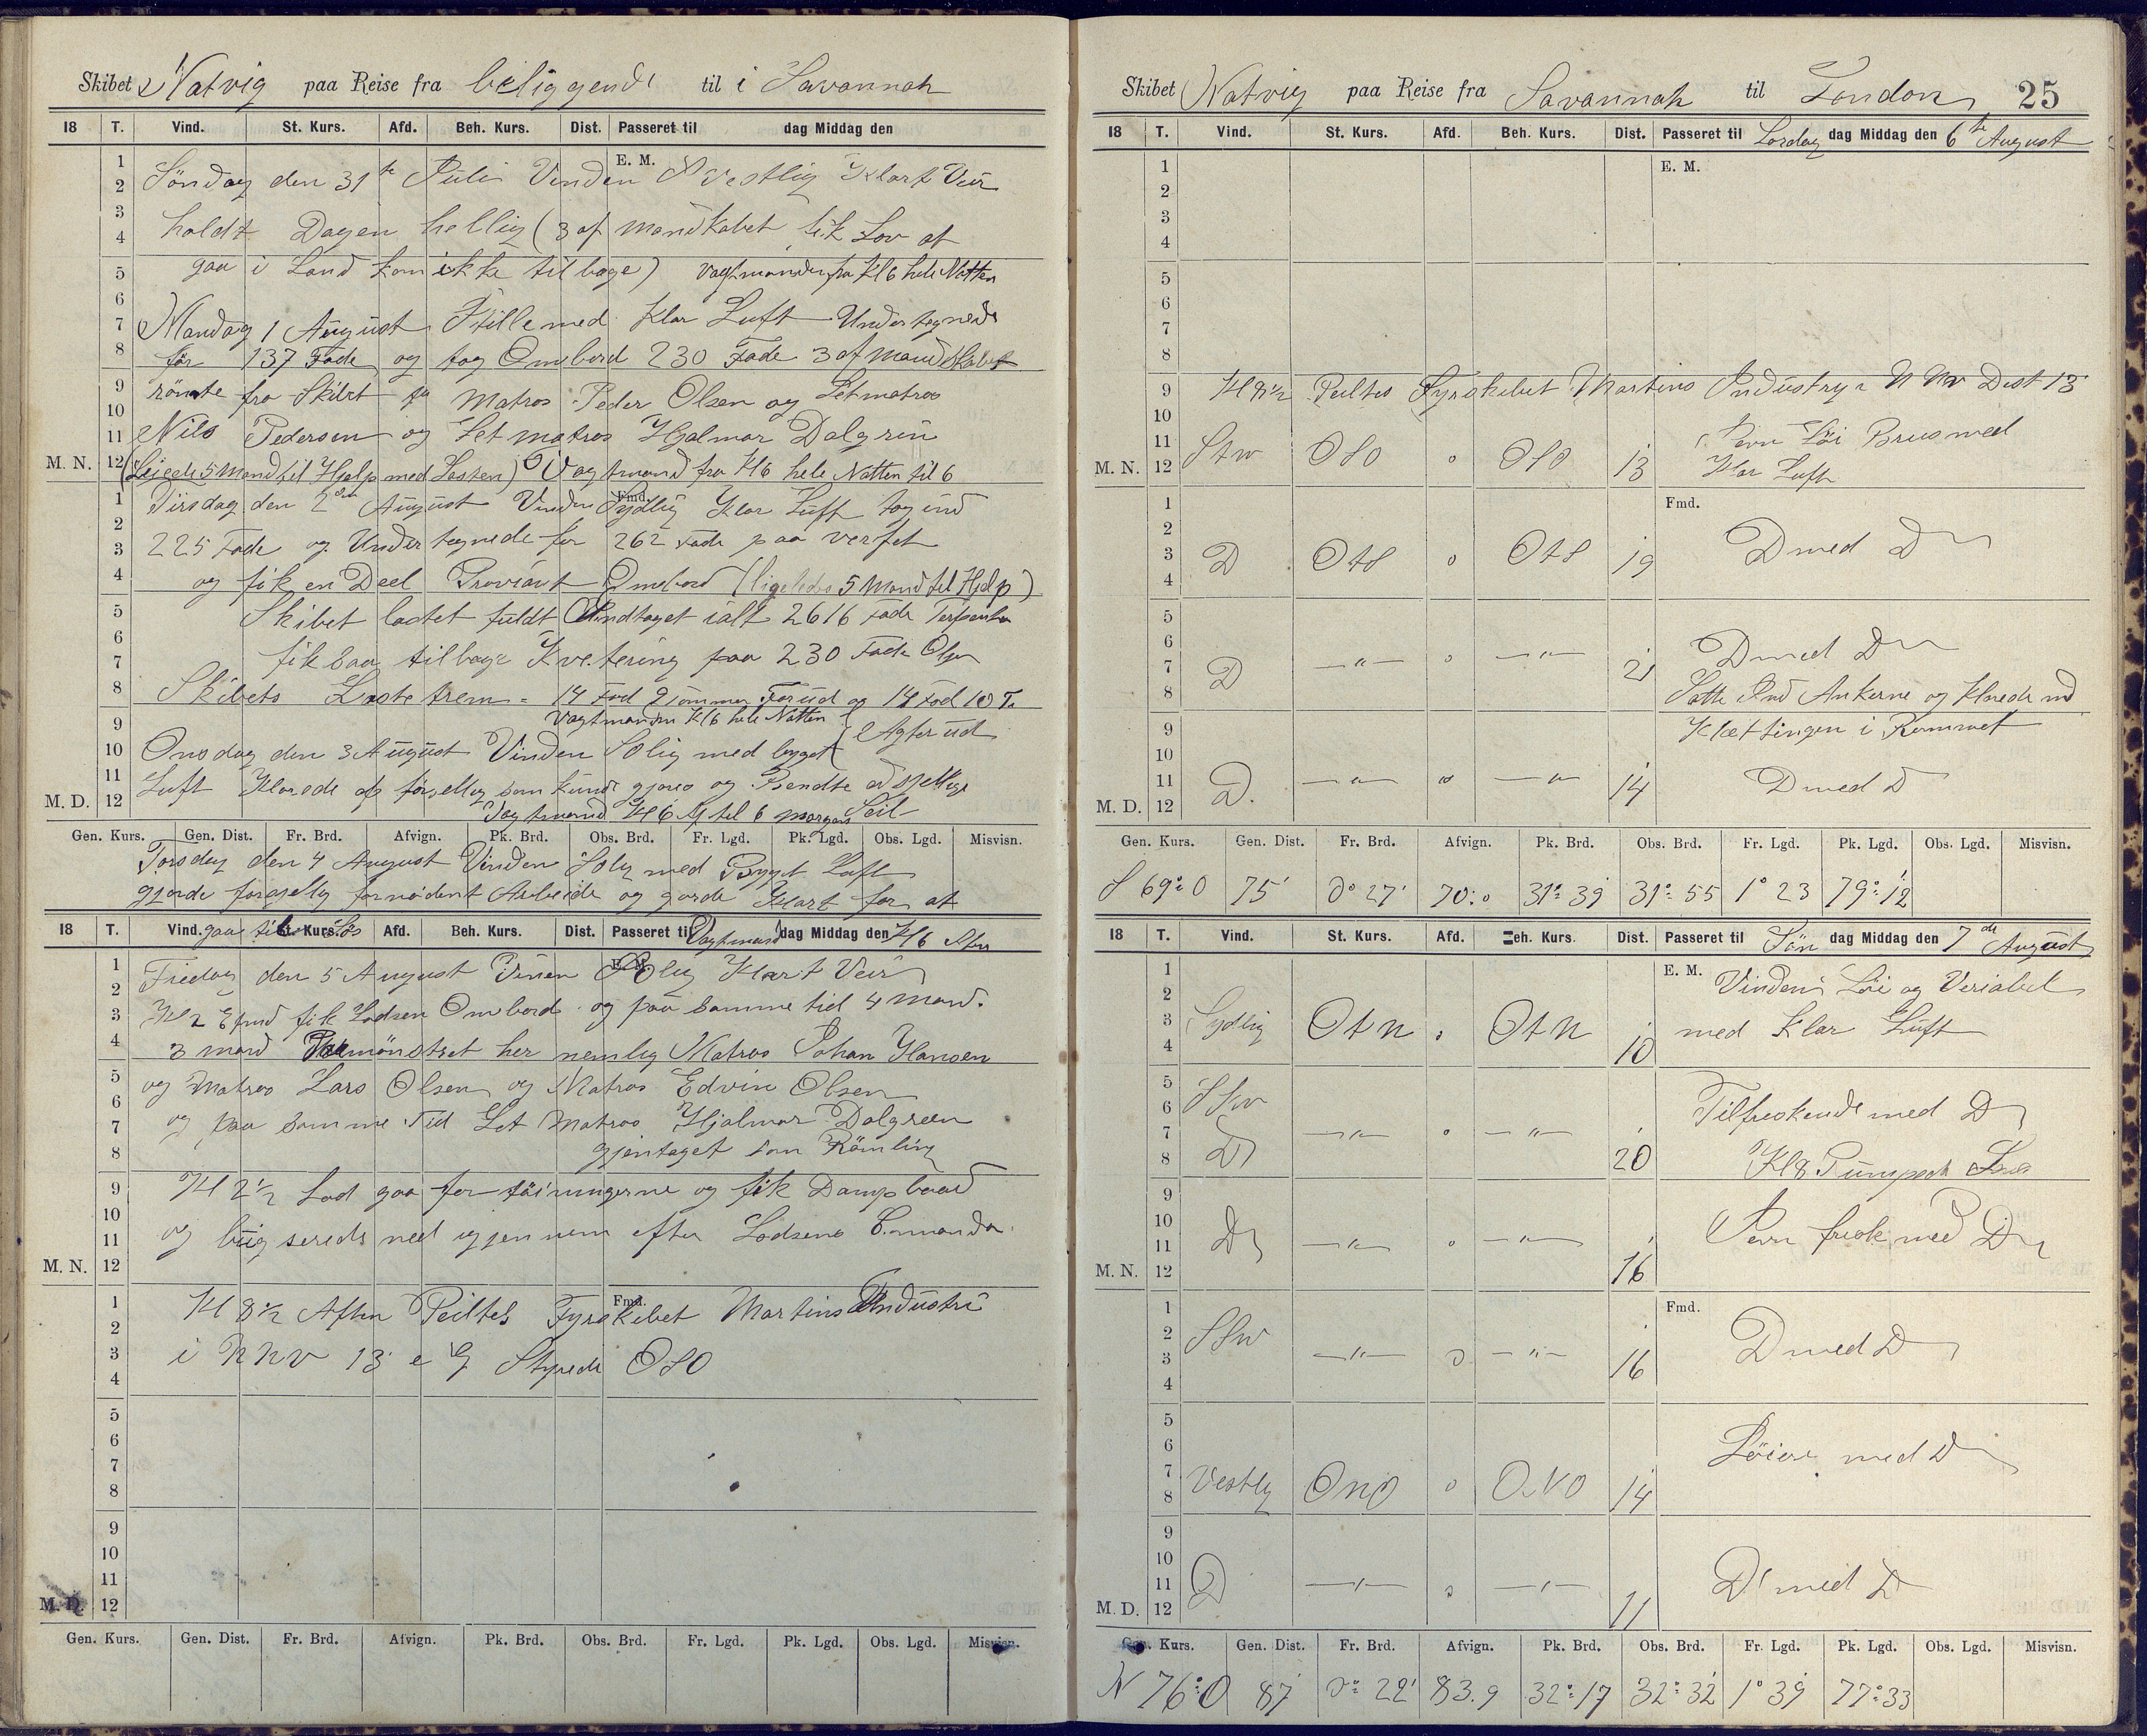 Skibet Natvig paa Reise fra beliggende til i Savannah
18 T. Vind. St. Kurs. Afd. Beh. Kurs. Dist. Passeret til dag Middag den
E. M.
Söndag den 31te Juli Vinden Vestlig Klart Veir
holdt Dagen hellig (3 af mandkabet fik Lov at
gaa i Land kom ikke tilbage) Vagtmanden fra Kl 6 hele Natten
Mandag 1 August Stille med Klar Luft Undertegnede
for 137 Fade og tog Ombord 230 Fade 3 af Mandskabet
römte fra Skibet Matros Peder Olsen og Letmatros
Nils Pedersen og Letmatros Hjalmar Dalgren
M. N. (Leiede 5 Mand til Hjelp med Lasten) Vagtmand fra Kl 6 hele Natten til 6
Fmd.
Tirsdag den 2den August Vinden Sydlig Klar Luft tog ind
225 Fade og Undertegnede for 262 Fade paa verfet
og fik en Deel Proviant Ombord (ligeledes 5 Mand til Hjelp)
Skibet lastet fuldt Indtaget ialt 2616 Fade
fik saa tilbage Kvetering paa 230 Fade
Skibets 14 Fod 9 tommer Forud og 14 Fod 10 T
Vagtmanden Kl 6 hele Natten Agterud
Onsdag den 3 August Vinden Solig med bygget
Luft Klarede op forsjellig som kunde gjöres og Bendte
M. D. Vagtmand Kl 6 til 6 morgen Seil
Gen. Kurs. Gen. Dist. Fr. Brd. Afvign. Pk. Brd. Obs. Brd. Fr. Lgd. Pk. Lgd. Obs. Lgd. Misvisn.
Torsdag den 4 August Vinden Solig med Bygget Luft
gjorde forsjellig fornödent Arbeide og gorde Klart for at
gaa til Sös Vagtmand Kl 6
18 T. Vind. St. Kurs. Afd. Beh. Kurs. Dist. Passeret til dag Middag den
E. M.
Fredag den 5 August Vinen Solig Klart Veir
Kl 2 Efmd fik Lodsen Ombord og paa samme tid 4 mand.
3 mand Paamönstret her nemlig Matros Johan Hansen
og Matros Lars Olsen og Matros Edvin Olsen
og paa samme Tid Let Matros Hjalmar Dalgreen
gjentaget som Römling
Kl 2½ Lod gaa for töiningerne og fik Dampbaad
og bugserede ned igjennem efter Lodsens
M. N.
Fmd.
Kl 8½ Aften Peiltes Fyrskibet Martins Industri
i NNV 13' Styrede OSO
M. D.
Gen. Kurs. Gen. Dist. Fr. Brd. Afvign. Pk. Brd. Obs. Brd. Fr. Lgd. Pk. Lgd. Obs. Lgd. Misvisn.
Skibet Natvig paa Reise fra Savannah til London 25
18 T. Vind. St. Kurs. Afd. Beh. Kurs. Dist. Passeret til Lördag dag Middag den 6te August
E. M.
Kl 8½ Peiltes Fyrskibet Martins Industry i NNW Dist 13'
M. N. OSO 0 OSO 13 Jevn Löi Brus med
Klar Luft
Fmd.
D OtS 0 OtS 19 D med D
D —"— 0 —"— 21 D med D
Satte Ind Ankerne og
Kjettingen i Rummet
M. D. D. —"— 0 —"— 14 D med D
Gen. Kurs. Gen. Dist. Fr. Brd. Afvign. Pk. Brd. Obs. Brd. Fr. Lgd. Pk. Lgd. Obs. Lgd. Misvisn.
S 69° O 75' 0° 27' 70.0 31° 39' 31° 55 1° 23 79° 12
18 T. Vind. St. Kurs. Afd. Beh. Kurs. Dist. Passeret til Sön dag Middag den 7de August
E. M. Vinden Löi og Veriabel
Sydlig OtN 0 OtN 10 med Klar Luft
SSW
D —"— 0 —"— 20 Tilfriskende med D
Kl 8 Pumpede Læns
M. N. D —"— 0 —"— 16 Jevn frisk med D
Fmd.
SSW —"— 0 —"— 16 D med D
Vestlig ONO 0 ONO 14 Löiere med D
M. D. D —"— 0 —"— 11 D med D
Gen. Kurs. Gen. Dist. Fr. Brd. Afvign. Pk. Brd. Obs. Brd. Fr. Lgd. Pk. Lgd. Obs. Lgd. Misvisn.
N 76° O 87 0° 22' 83.9 32° 17 32° 32' 1° 39' 77° 33